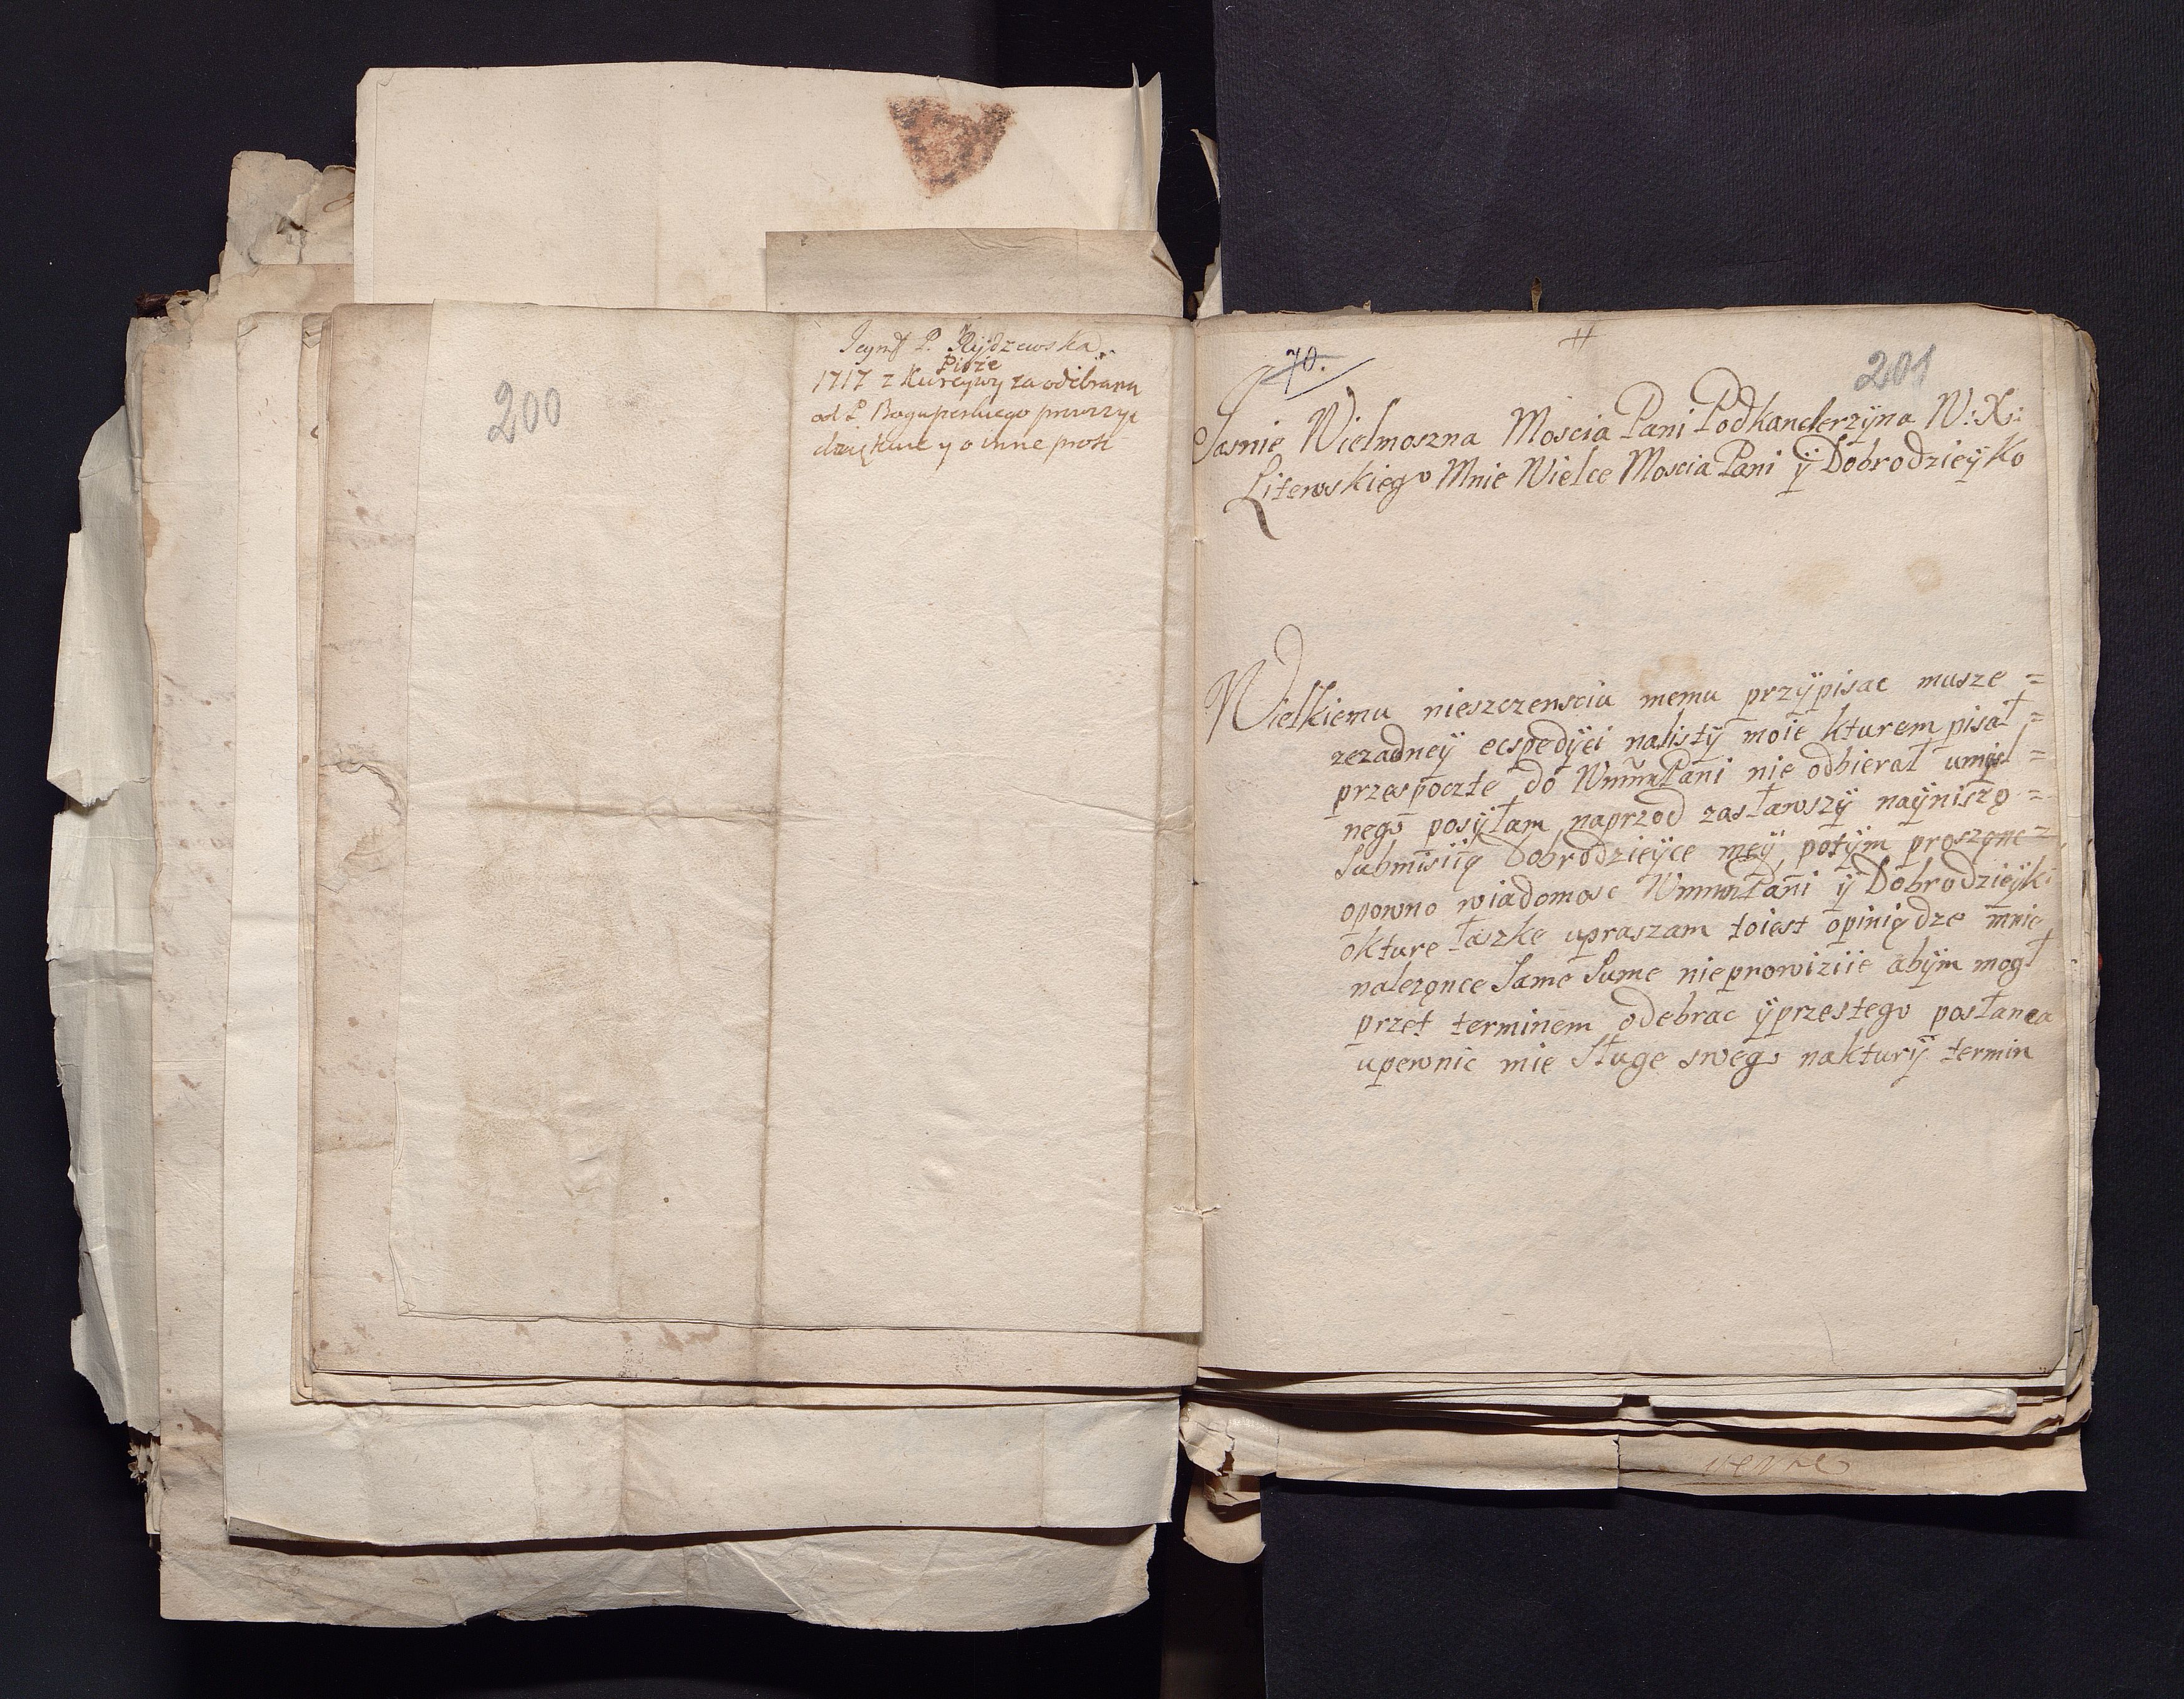 200
Jeym P. Rydzewska
Pisze
1717 z Kurcywy za odebranu
od P. Boguperskiego prowizye
dziękuie y o inne prosi
70.
201
Jasnie Wielmoszna Moscia Pani Podkanclerzÿna W: X:
Litewskiego Mnie Wielce Moscia Pani ÿ Dobrodzieÿko
Wielkiemu nieszczensciu memu przÿpisac musze =
zezadneÿ ecspedÿci nalistÿ moie kturem pisał =
przespoczte do WmmPani nie odbierał umysl =
nego posÿłam naprzod zasławszÿ naÿniszą =
Submisiią Dobrodzieÿce meÿ potÿm proszonc =
opowno wiadomosc WmmPani ÿ Dobrodzieÿki
okture łaszke upraszam toiest opiniądze mnie
nalezonce Same Sume nieprowiziie abÿm mogł
przet terminem odebrac ÿprzestego posłanca
upewnic mie Sługe swego nakturÿ termin